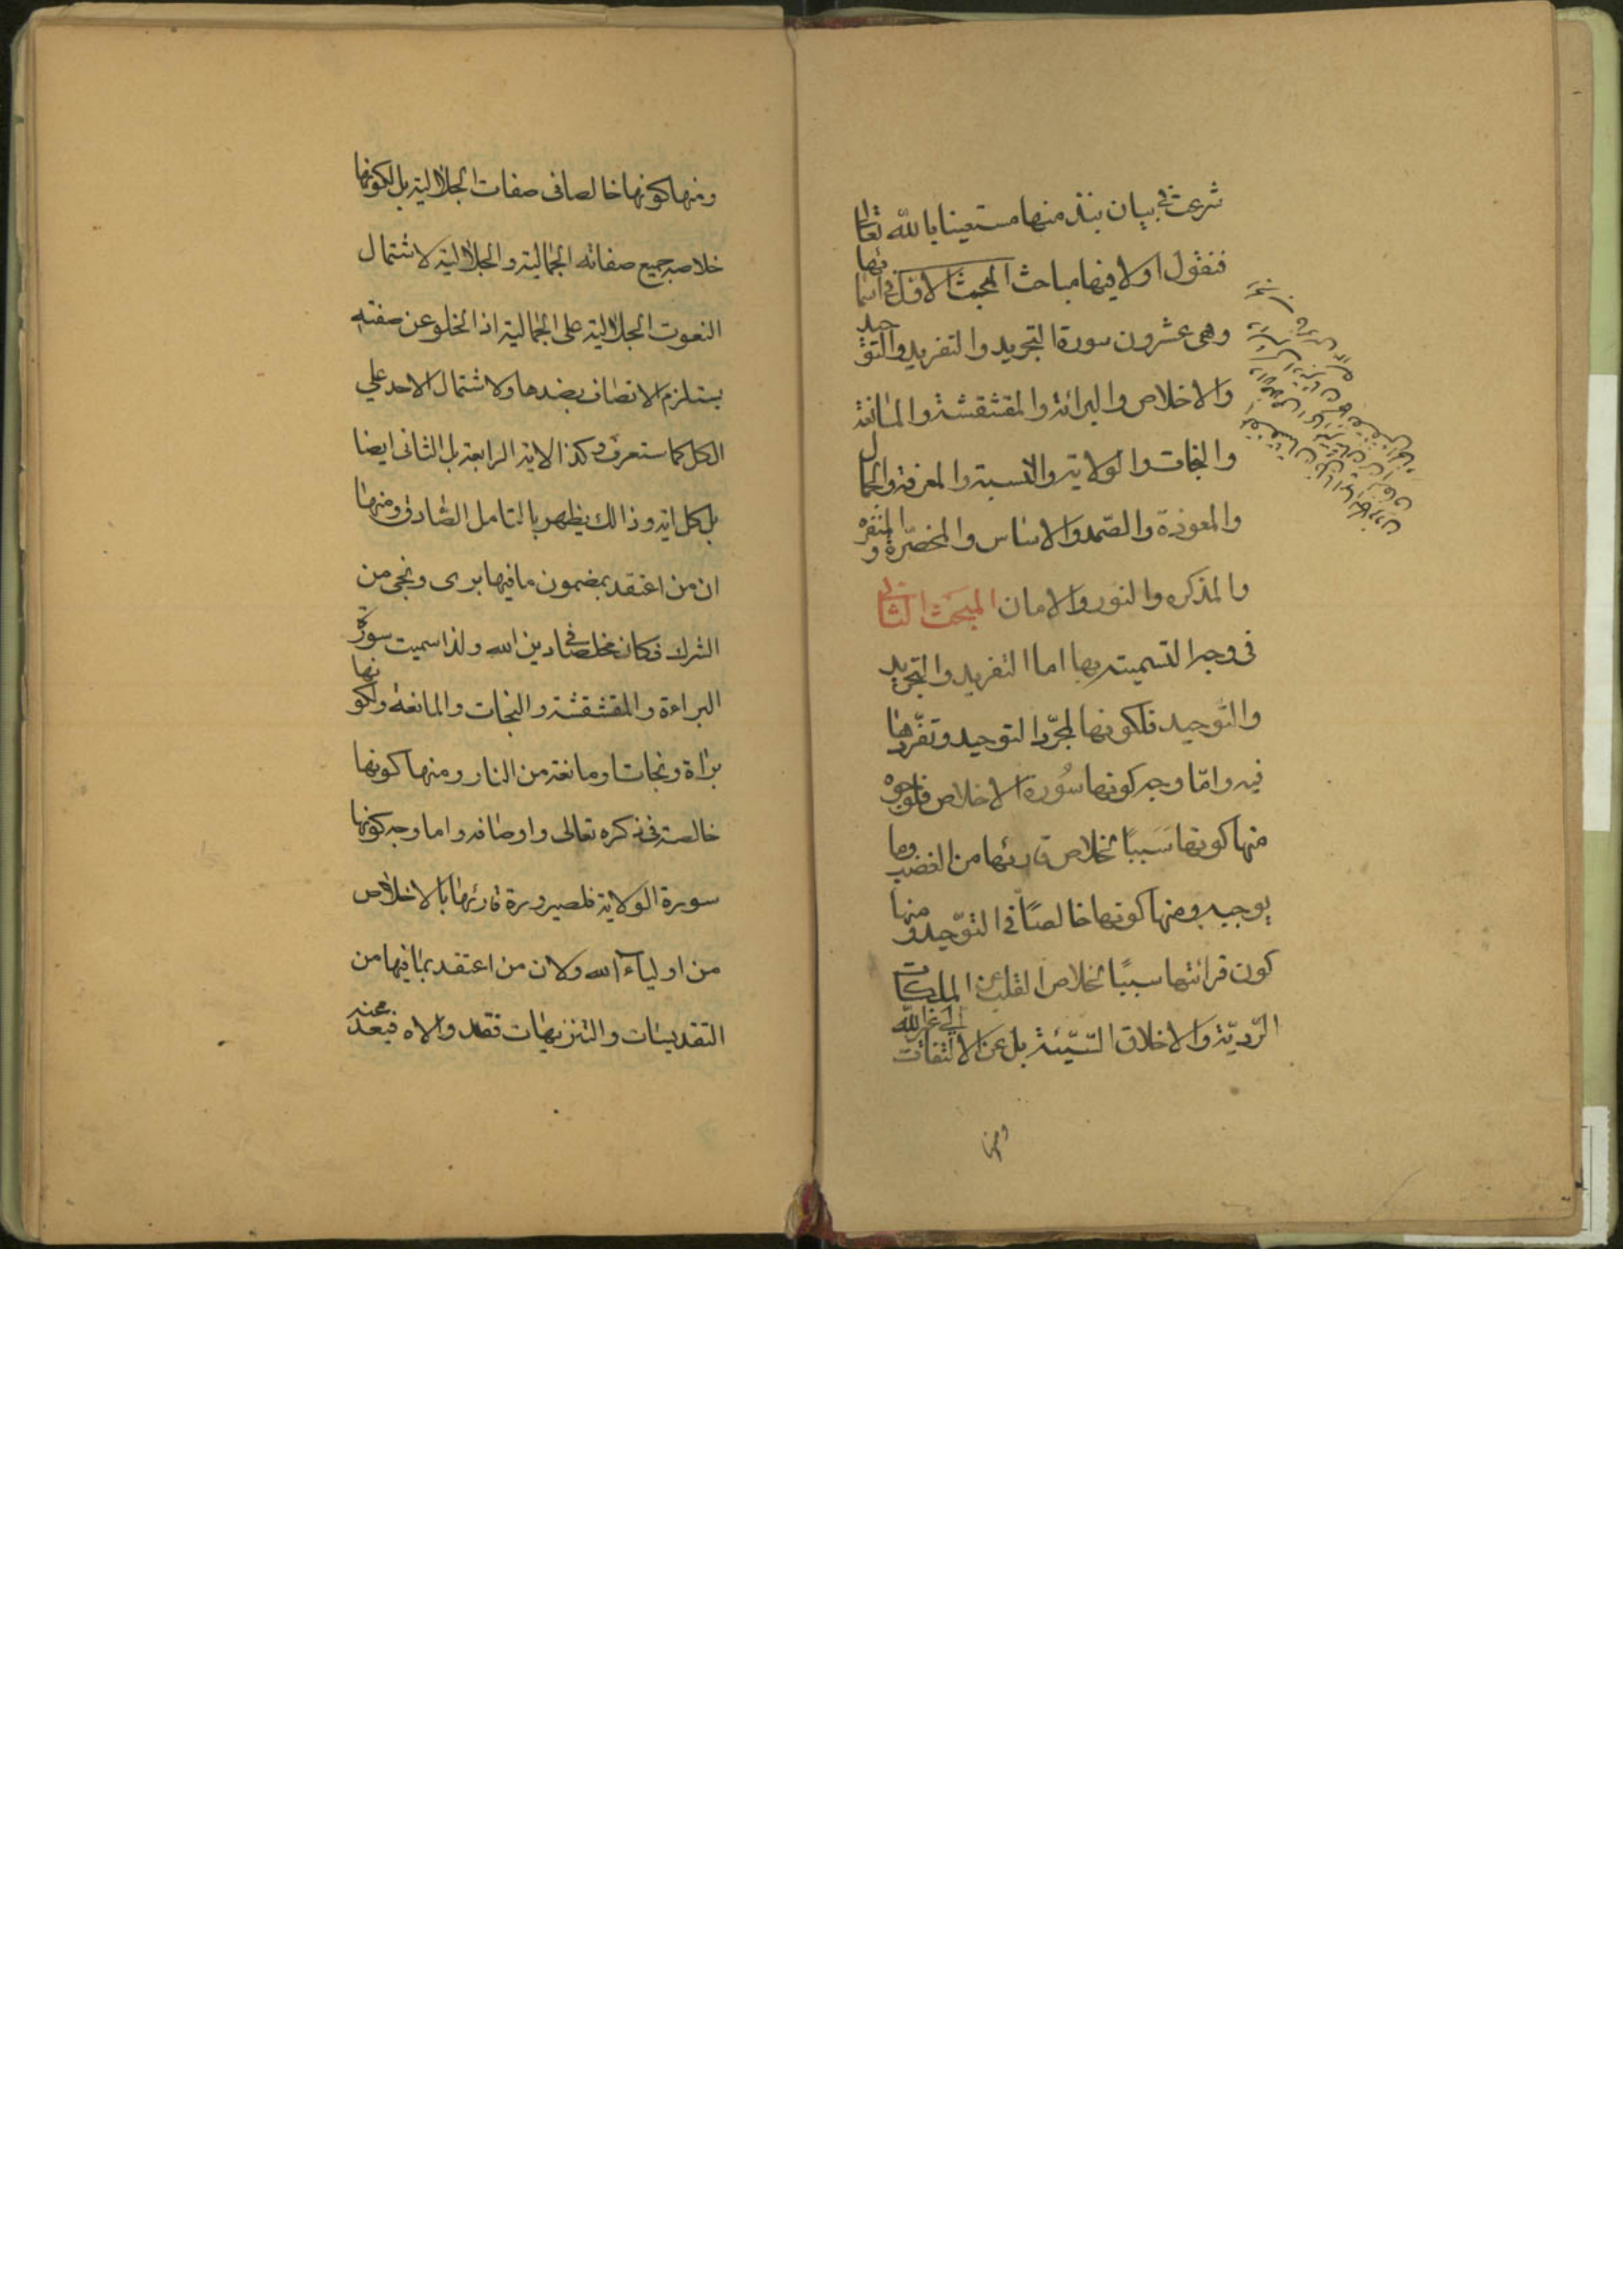 شرعت في بيان نبذ منها مستعينا بالله تعالى
فنقول اولا فيها مباحث المبحث الاول في اسمائها
وهي عشرون سورة التجريد والتفريد والتوحيد
والاخلاص والبرائة والمقشقشة والمانعة
والنجات والولاية والنسبة والمعرفة والجمال
والمعوذة والصّمد والاساس والمحضرة والمنفره
والمذكره والنور والامان المبحث الثاني
في وجه التسمية بها اما التفريد والتجريد
والتوحيد فلكونها لمجرّد التوحيد وتفرّدها
فيه وامّا وجه كونها سُورة الاخلاص فلوجوه
منها كونها سَببًا لخلاص قارئها من الغضب وما
يوجبه ومنها كونها خالصًا في التوّحيد ومنها
كون قرائتها سببًا لخلاص القلب عن الملكات
الرّديّة والاخلاق السّيّئة بل عن الالتفات الى غير اللّه
ومنها
ومنها كونها خالصا في صفات الجلالية بل لكونها
خلاصه جميع صفاته الجمالية والجلالية لاشتمال
النعوت الجلالية على الجمالية اذ الخلو عن صفته
يستلزم الاتصاف بضدها ولاشتمال الاحد علي
الكل كما ستعرف وكذا الاية الرابعة بل الثاني ايضا
بل كل اية وذالك يظهر بالتامل الصّادق ومنها
ان من اعتقد بمضمون ما فيها برى ونجى من
الشرك فكان مخلصا في دين الله ولذا سميت سورة
البراءة والمقشقشة والنجات والمانعة ولكونها
برٰاة ونجاتا ومانعة من النار ومنها كونها
خالصة في ذكره تعالى واوصافه واما وجه كونها
سورة الولاية فلصيرورة قارئها بالاخلاص
من اولياء الله ولان من اعتقد بما فيها من
التقديسات والتنزيهات فقد والاه فبعد محنة